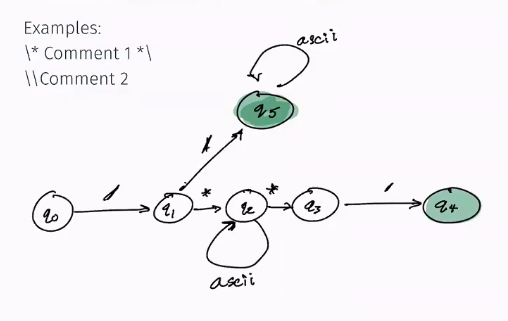 Examples:
\* Comment 1 *\
\\Comment 2
ascii
q5
q0
q1
*
q2
*
q3
q4
ascii